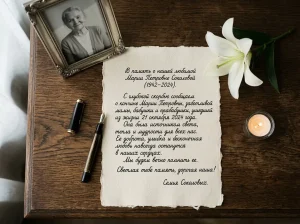 В память о нашей любимой
Марии Петровне Соколовой
(1942-2024).
С глубокой скорбью сообщаем
о кончине Марии Петровны, заботливой
мамы, бабушки и прабабушки, ушедшей
из жизни 21 октября 2024 года.
Она была источником света,
тепла и мудрости для всех нас.
Ее доброта, улыбка и бесконечная
любовь навсегда останутся
в наших сердцах.
Мы будем вечно помнить ее.
Светлая тебе память, дорогая наша!
Семья Соколовых.